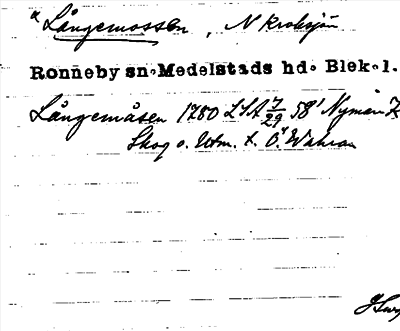 Långemossen, N Kroksjön
Ronneby sn. Medelstads hd. Blek. l.
Långemåsen 1780 LSA 7/29 58' Nyman
Skog o. Utm. t.